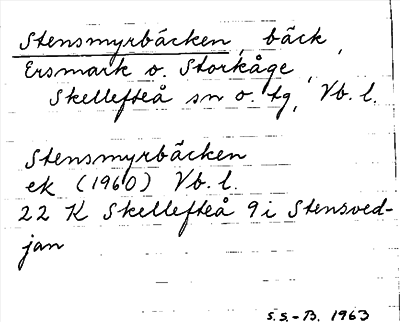 Stensmyrbäcken, bäck,
Ersmark o. Storkåge,
Skellefteå sn o. tg, Vb. l.
Stensmyrbäcken
ek (1960) Vb. l.
22 K Skellefteå 9 i Stensved-
jan
S.S.-B. 1963